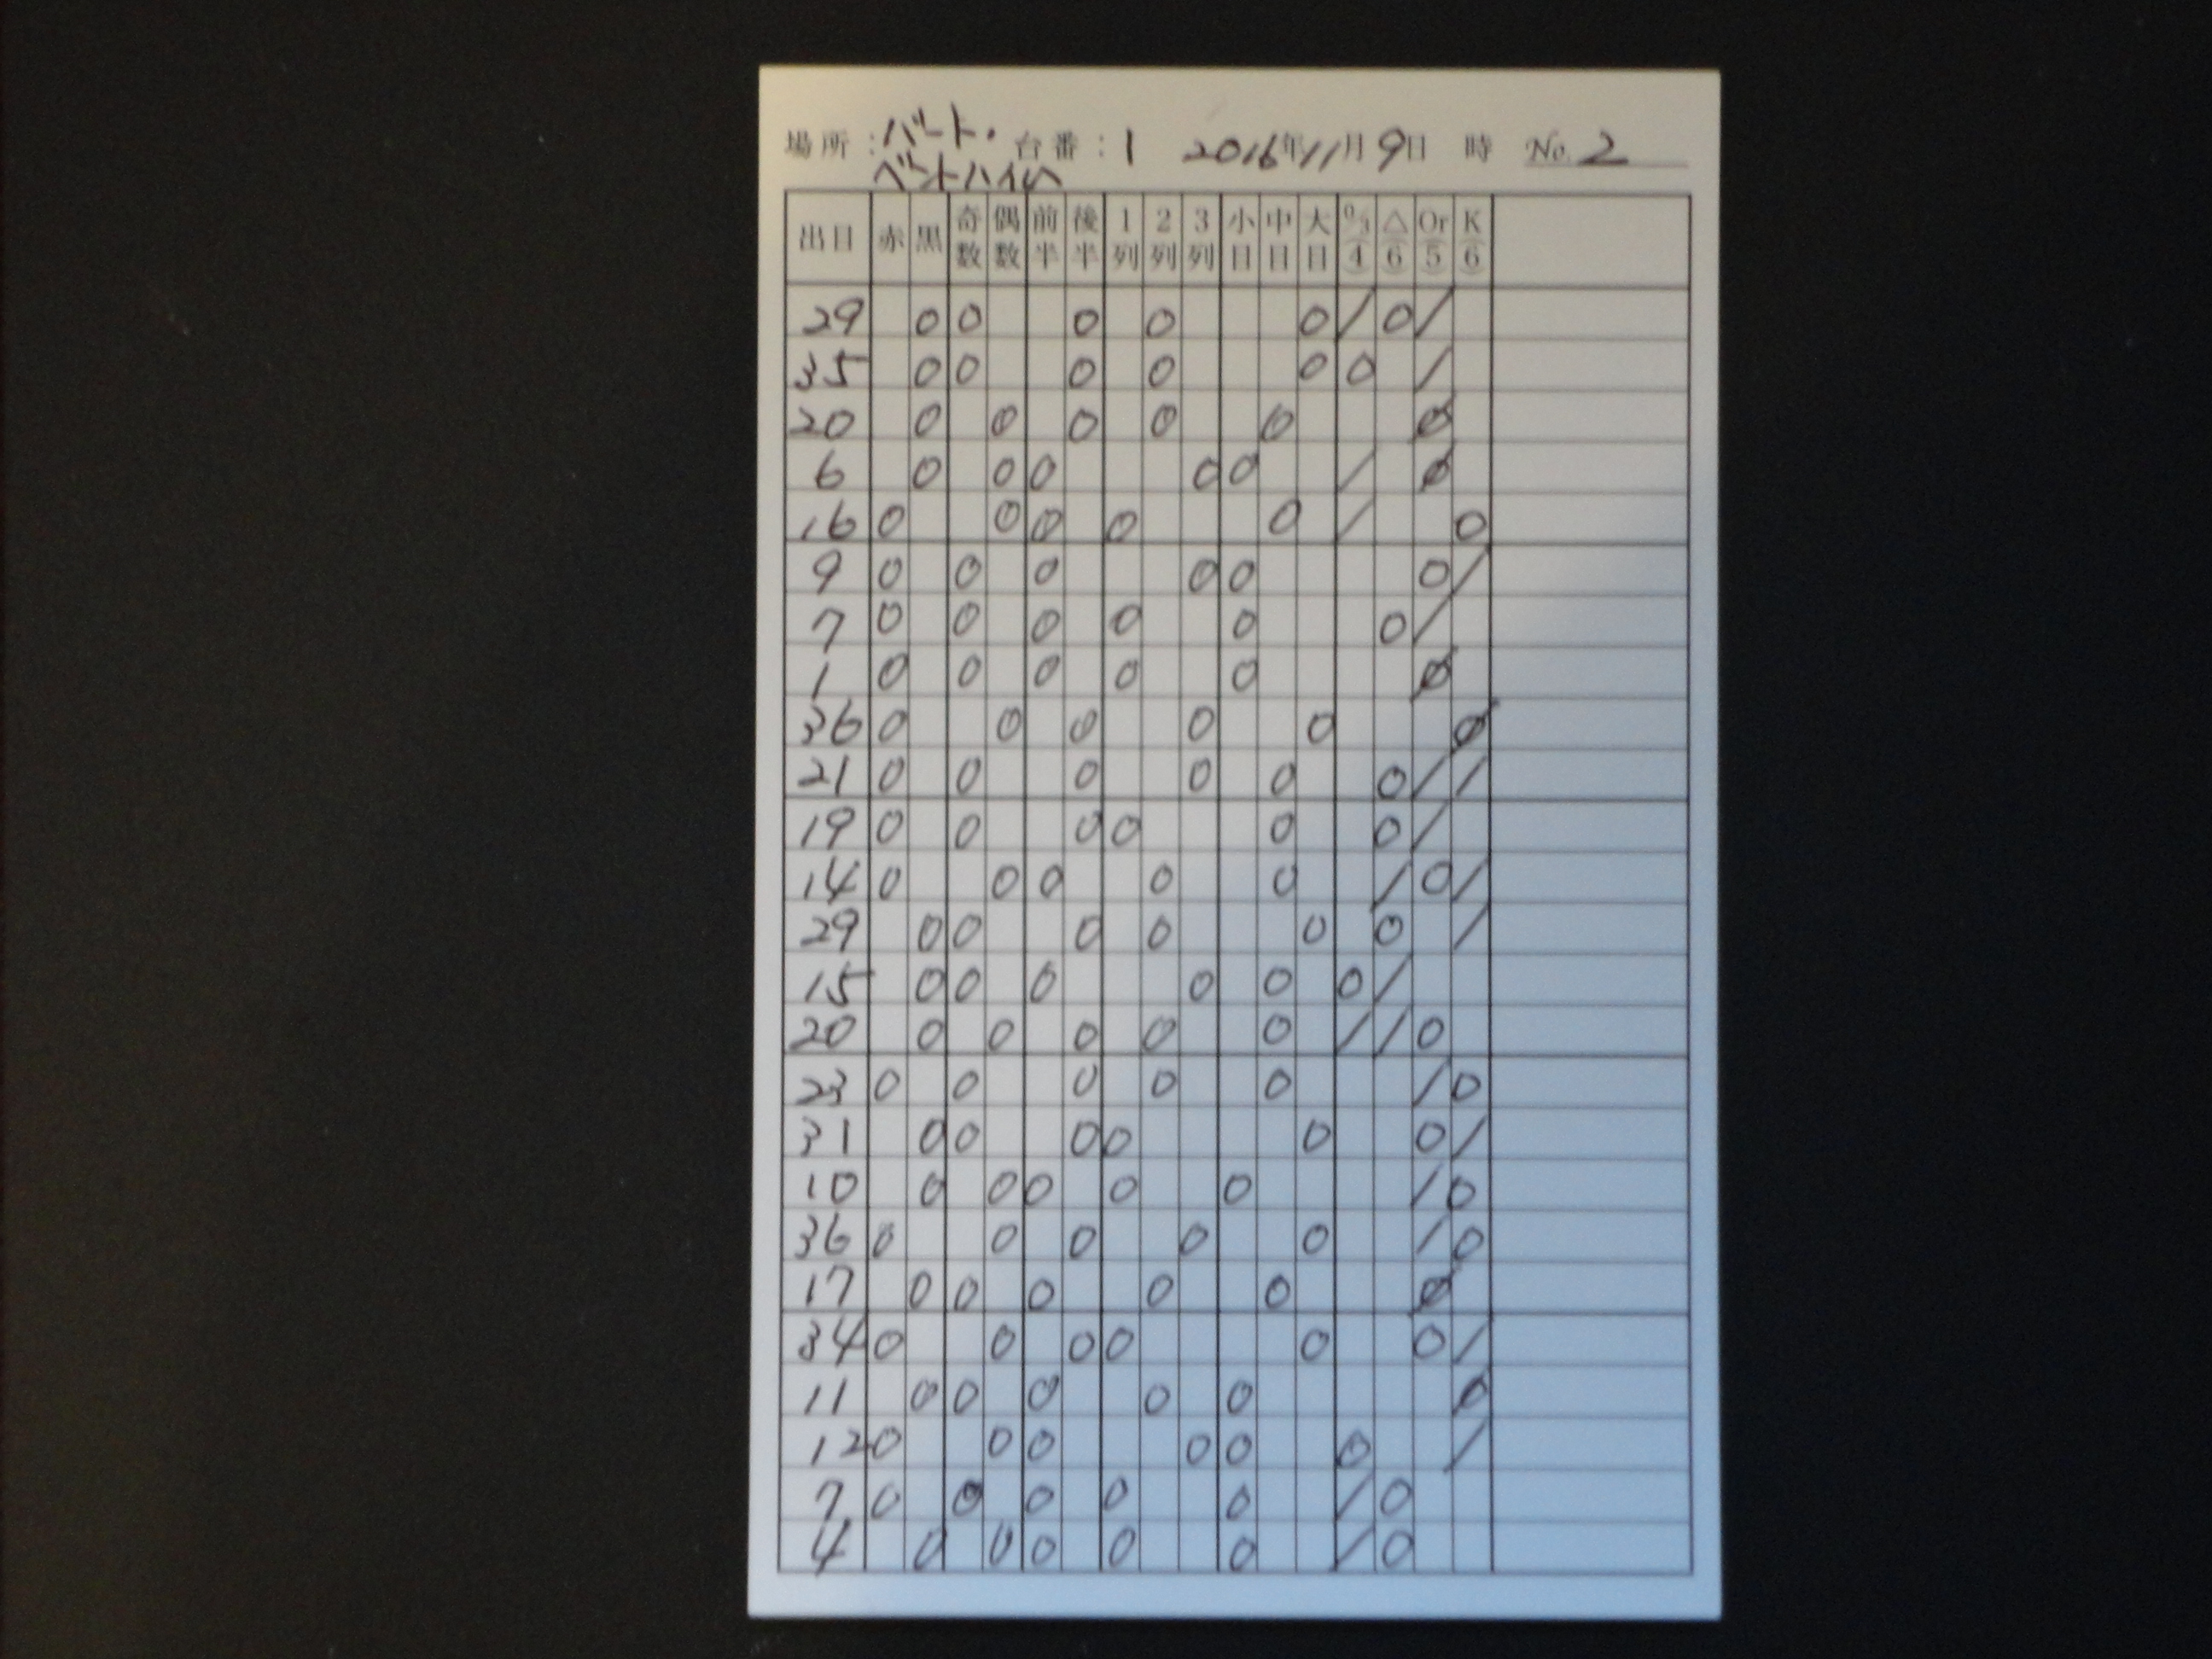 場所：バート・ 台番：1 2016年11月9日 時 No. 2
ベントハイム
出目 赤 黒 奇数 偶数 前半 後半 1列 2列 3列 小目 中目 大目 0/3 4 △ 6 Or 5 K 6
29 0 0 0 0 0 / 0 /
35 0 0 0 0 0 0 /
20 0 0 0 0 0 Ø
6 0 0 0 0 0 / Ø
16 0 0 0 0 0 / 0
9 0 0 0 0 0 0 /
7 0 0 0 0 0 0 /
1 0 0 0 0 0 Ø
36 0 0 0 0 0 Ø
21 0 0 0 0 0 0 / /
19 0 0 0 0 0 0 /
14 0 0 0 0 0 / 0 /
29 0 0 0 0 0 0 /
15 0 0 0 0 0 0 /
20 0 0 0 0 0 / / 0
23 0 0 0 0 0 / 0
31 0 0 0 0 0 0 /
10 0 0 0 0 0 / 0
36 0 0 0 0 0 / 0
17 0 0 0 0 0 Ø
34 0 0 0 0 0 0 /
11 0 0 0 0 0 Ø
12 0 0 0 0 0 0 /
7 0 0 0 0 0 / 0
4 0 0 0 0 0 / 0